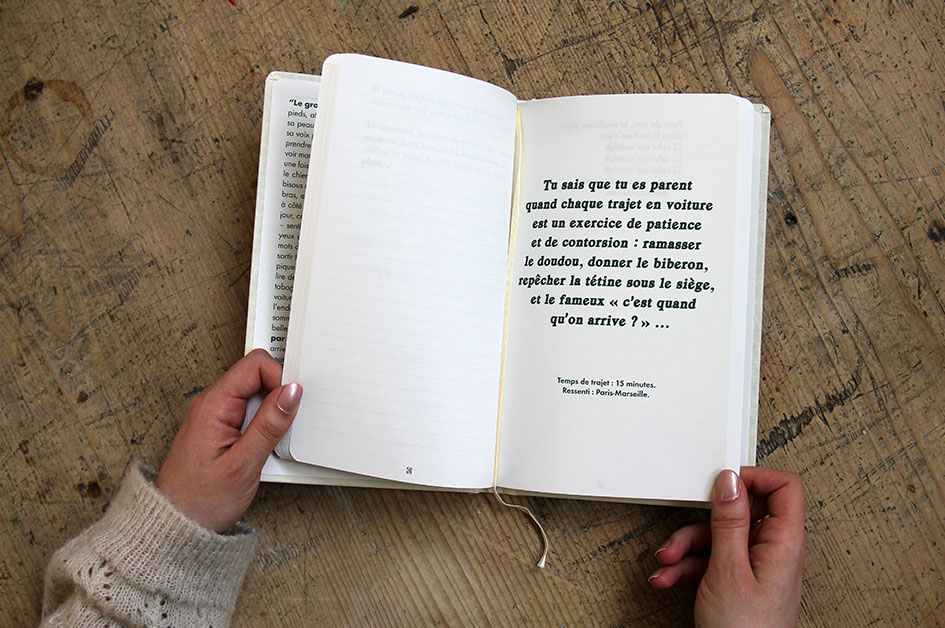 “Le gro
pieds, at
sa peau
sa voix
prendre
voir mar
une fois
le chien
bisous
bras, e
à côté
jour, c
– senti
yeux
mots
sortir
pique
lire de
tobog
voitur
l'end
somm
belle
par
arriv
Tu sais que tu es parent
quand chaque trajet en voiture
est un exercice de patience
et de contorsion : ramasser
le doudou, donner le biberon,
repêcher la tétine sous le siège,
et le fameux « c'est quand
qu'on arrive ? » ...
Temps de trajet : 15 minutes.
Ressenti : Paris-Marseille.